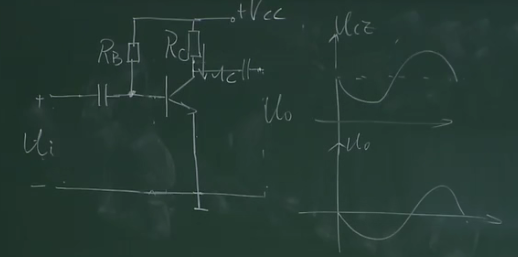 +Vcc
RB
Rc
uc
+
Ui
−
Uo
uce
uo